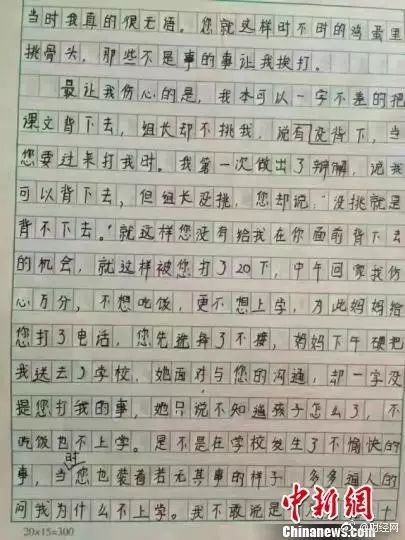 当时我真的很无语。您就这样时不时的鸡蛋里
挑骨头，那些不是事的事让我挨打。
最让我伤心的是，我本可以一字不差的把
课文背下去，组长却不挑我，说有没背下，当
您要过来打我时。我第一次做出了辩解，说我
可以背下去，但组长没挑，您却说：“没挑就是
背不下去。”就这样您没有给我在你面前背下去
的机会，就这样被您打了20下，中午回家我伤
心万分，不想吃饭，更不想上学，为此妈妈给
您打了电话，您先选择了不接，妈妈下午硬把
我送去了学校，她面对与您的沟通，却一字没
提您打我的事，她只说不知道孩子怎么了，不
吃饭也不上学。是不是在学校发生了不愉快的
事，当时您也装着若无其事的样子，多多逼人的
问我为什么不上学。我不敢说是
十
20×15=300
中新网
Chinanews.com
@财经网